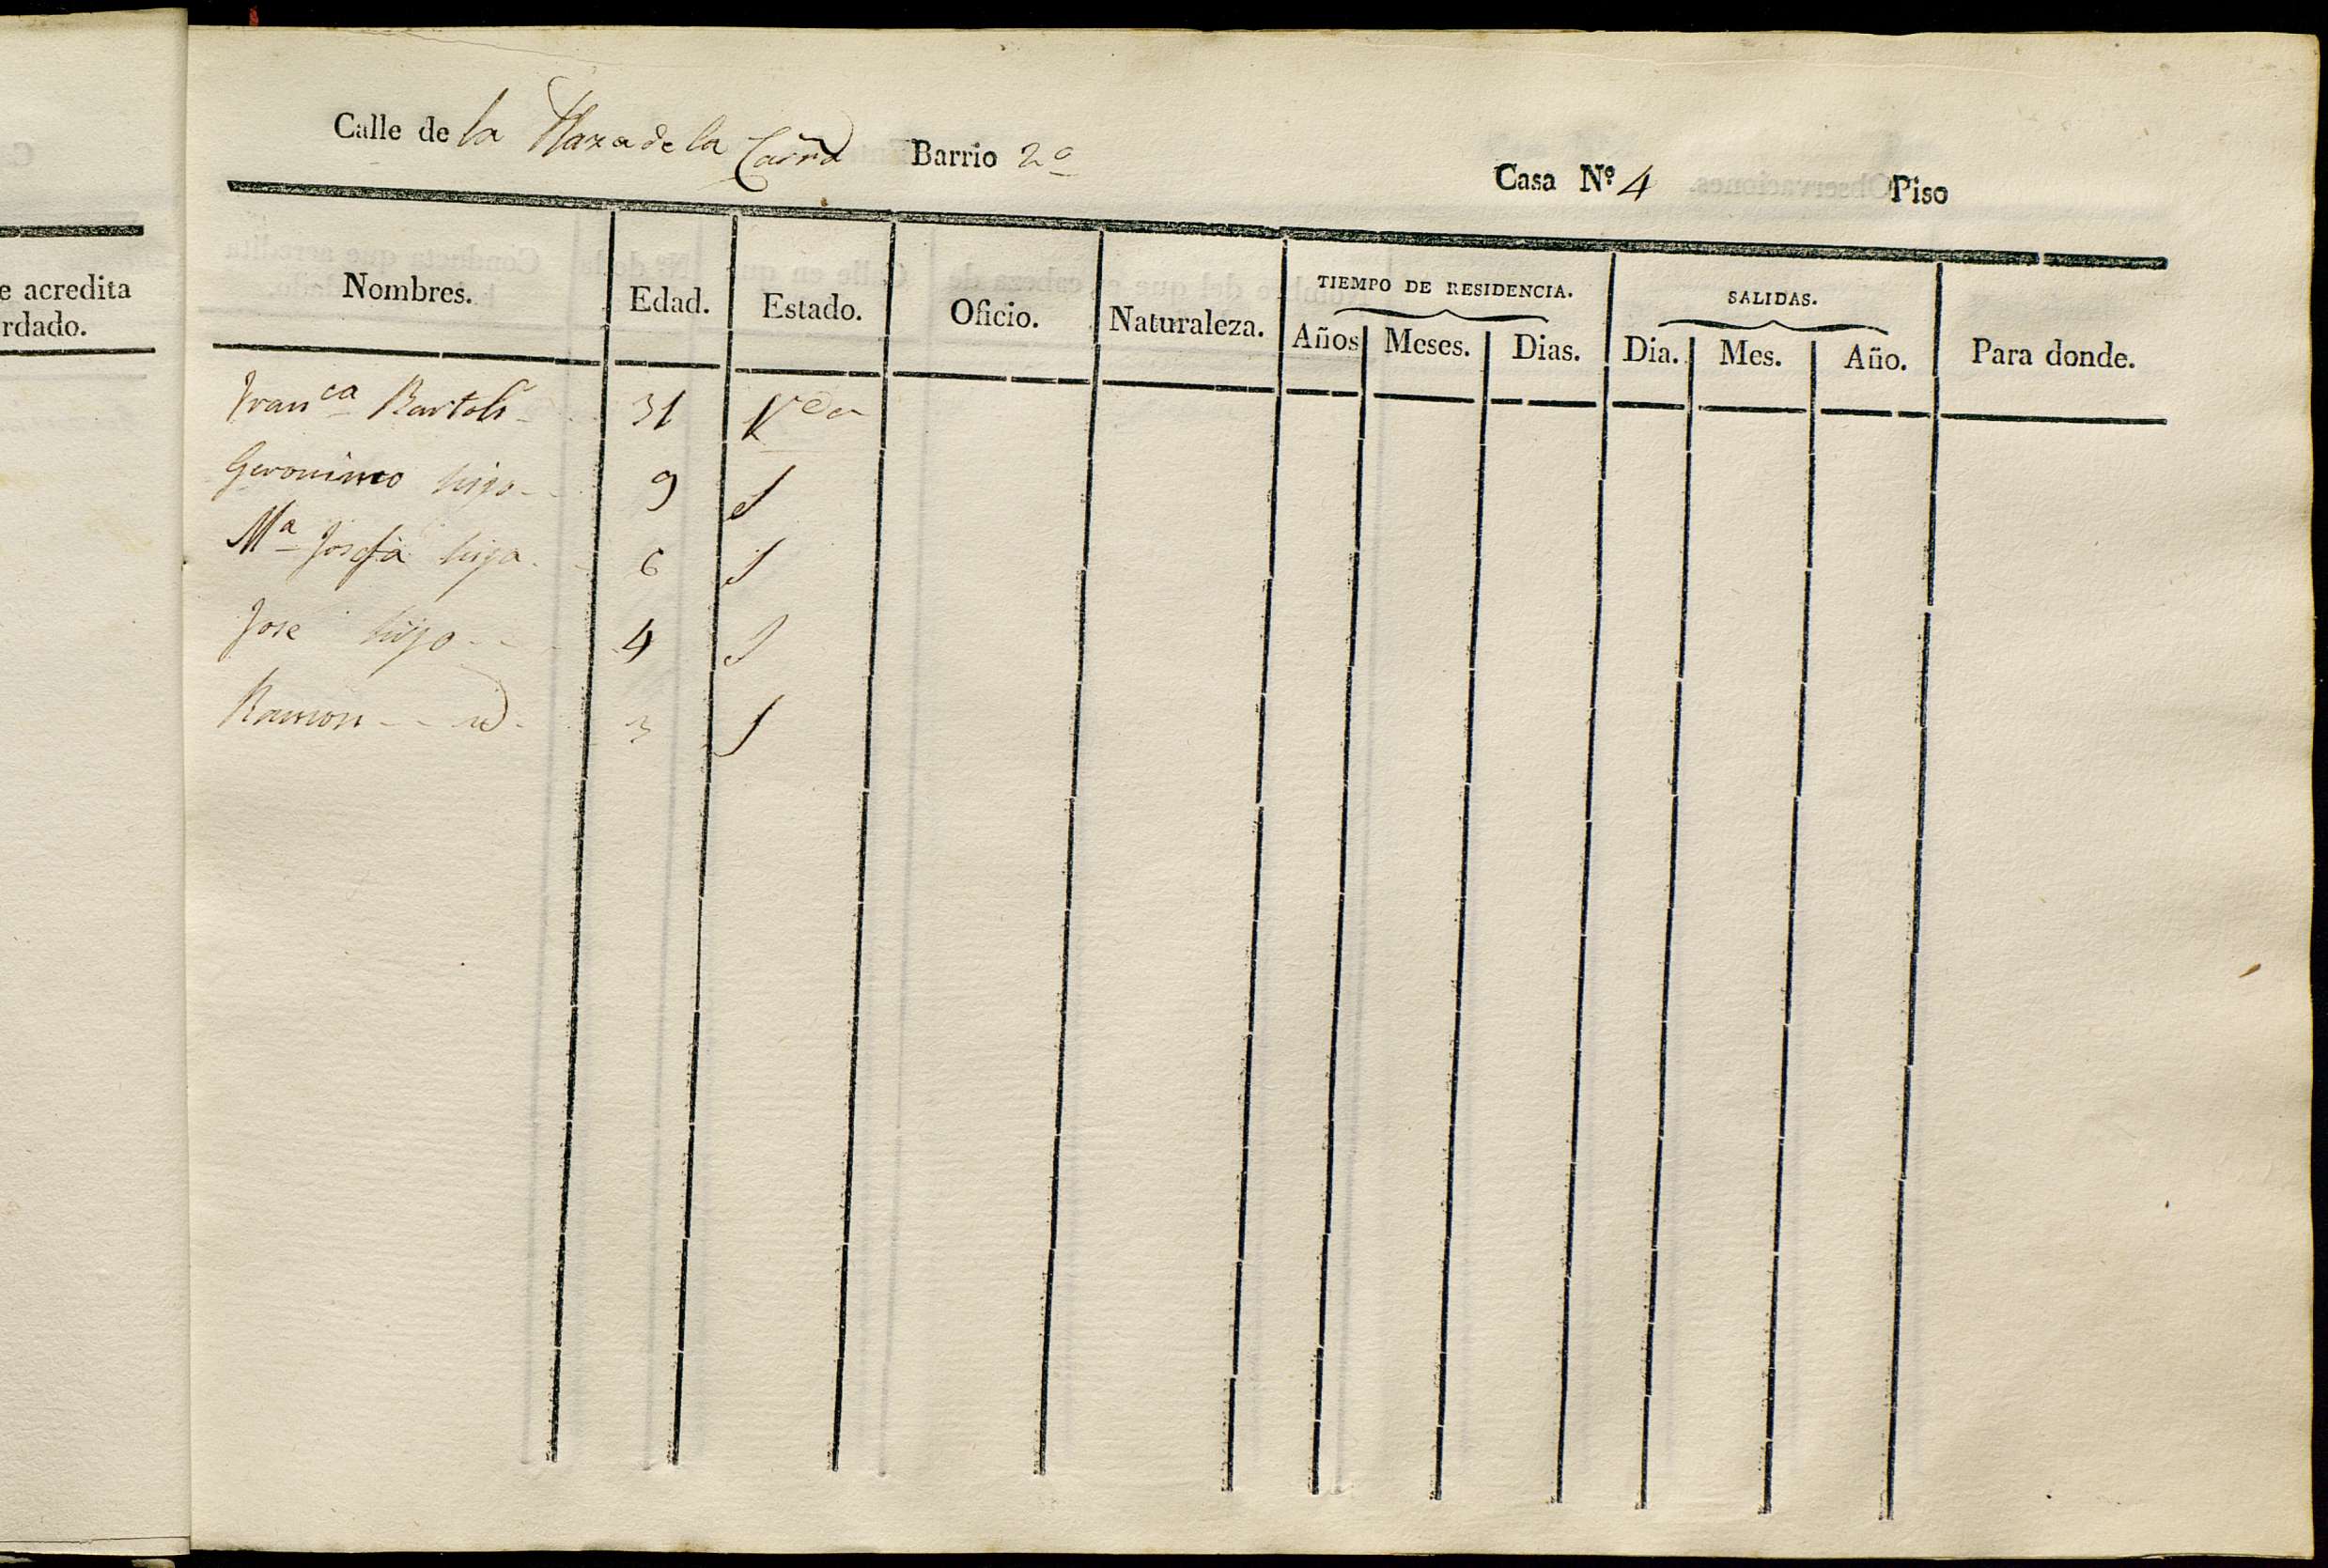 e acredita
rdado.
Calle de la Plaza de la Barrio 2ª Casa Nº 4 Piso
Nombres. Edad. Estado. Oficio. Naturaleza. TIEMPO DE RESIDENCIA. SALIDAS. Para donde.
Años Meses. Dias. Dia. Mes. Año.
Franca Bartoli 31 Vda
Geronimo hijo 9 S
Ma Josefa hija 6 S
Jose hijo 4 S
Ramon id 3 S